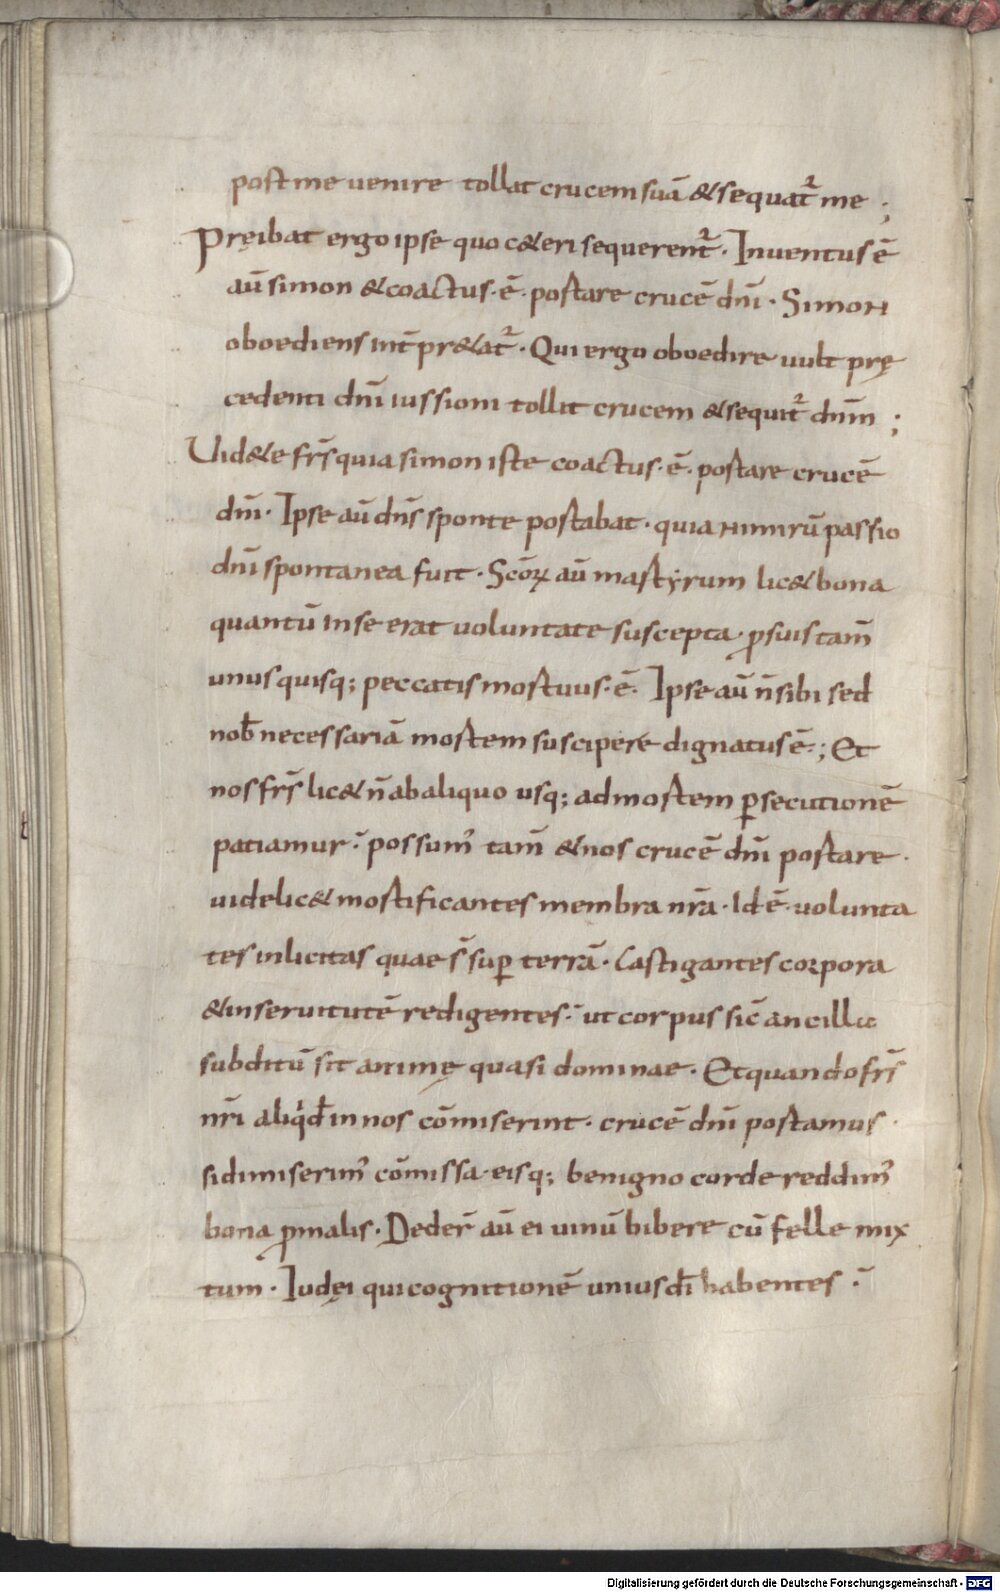 post me uenire tollat crucem suā & sequat᷒ me ;
Pręibat ergo ipse quo c&eri sequerent᷒ · Inuentus ē
aū simon & coactus · ē · portare crucē dn̄i · Simon
oboediens int̄pr&at᷒ · Qui ergo oboedire uult prę
cedenti dn̄i iussioni tollit crucem & sequit᷒ dn̄m ;
Uid&e fr̄s quia simon iste coactus · ē · portare crucē
dn̄i · Ipse aū dn̄s sponte portabat · quia nimirū passio
dn̄i spontanea fuit · Sc̄oꝝ aū martyrum lic& bona
quantū in se erat uoluntate suscepta · ꝓ suis tam̄
unus quisq; peccatis mortuus · ē · Ipse aū n̄ sibi sed
nob̄ necessariā mortem suscipere dignatus ē · ; Et
nos fr̄s lic& n̄ ab aliquo usq; ad mortem ꝑsecutionē
patiamur · possum᷒ tam̄ & nos crucē dn̄i portare ·
uidelic& mortificantes membra nr̄a · Id ē · uolunta
tes inlicitas quae s̄ suꝑ terrā · Castigantes corpora
& in seruitutē redigentes · ut corpus sic̄ ancilla
subditū sit animę quasi dominae · Et quando fr̄s
nr̄i aliqd̄ in nos cōmiserint · crucē dn̄i portamus ·
si dimiserim᷒ cōmissa · eisq; benigno corde reddim᷒
bona ꝓ malis · Deder̄ aū ei uinū bibere cū felle mix
tum · Iudęi qui cognitionē unius dī habentes ·
Digitalisierung gefördert durch die Deutsche Forschungsgemeinschaft - DFG